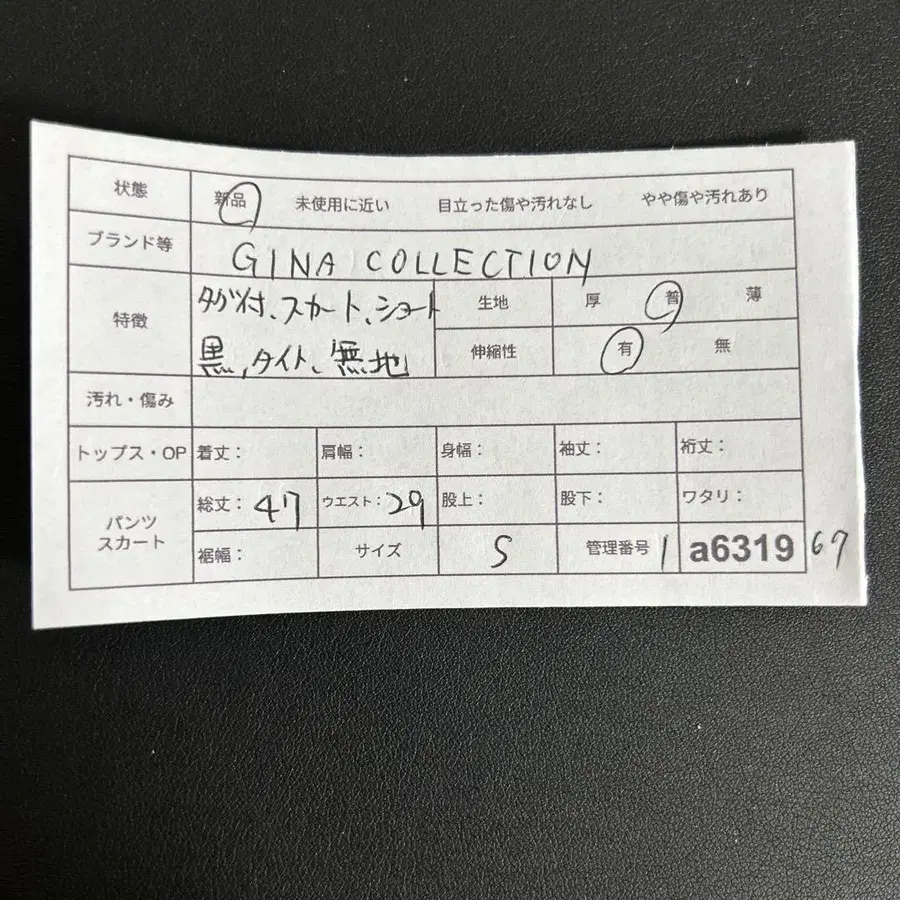 状態 新品 未使用に近い 目立った傷や汚れなし やや傷や汚れあり
ブランド等 GINA COLLECTION
特徴 タグ付、スカート、ショート 生地 厚 普 薄
黒、タイト、無地 伸縮性 有 無
汚れ・傷み
トップス・OP 着丈: 肩幅: 身幅: 袖丈: 裄丈:
パンツ スカート 総丈: 47 ウエスト: 29 股上: 股下: ワタリ:
裾幅: サイズ S 管理番号 1 a6319 67